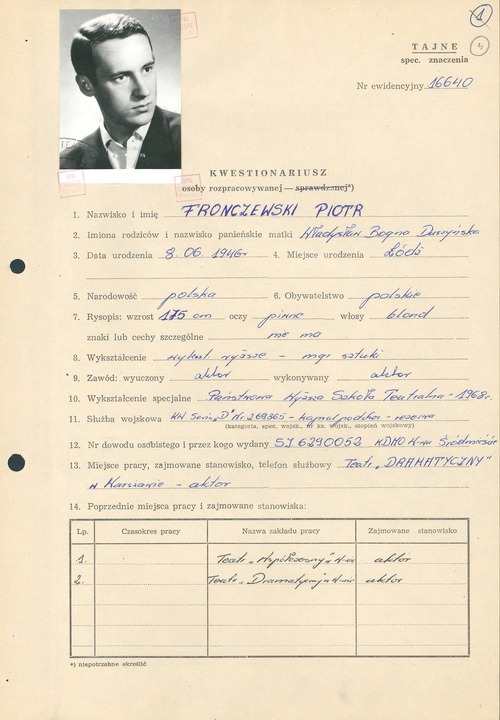 1
TAJNE
spec. znaczenia
Nr ewidencyjny 16640
KWESTIONARIUSZ
osoby rozpracowywanej — sprawdzanej*)
1. Nazwisko i imię FRONCZEWSKI PIOTR
2. Imiona rodziców i nazwisko panieńskie matki Władysław Bogna Duszyńska
3. Data urodzenia 8.06.1946r 4. Miejsce urodzenia Łódź
5. Narodowość polska 6. Obywatelstwo polskie
7. Rysopis: wzrost 175 cm oczy piwne włosy blond
znaki lub cechy szczególne nie ma
8. Wykształcenie wykszt wyższe - mgr sztuki
9. Zawód: wyuczony aktor wykonywany aktor
10. Wykształcenie specjalne Państwowa Wyższa Szkoła Teatralna - 1968r.
11. Służba wojskowa KW Seria „D" Nr 269365 - kapral podchor. - rezerwa
(kategoria, spec. wojsk., nr ks. wojsk., stopień wojskowy)
12. Nr dowodu osobistego i przez kogo wydany SJ 6290052 KDMO W-wa Śródmieście
13. Miejsce pracy, zajmowane stanowisko, telefon służbowy Teatr „DRAMATYCZNY"
w Warszawie - aktor
14. Poprzednie miejsca pracy i zajmowane stanowiska:
Lp. Czasokres pracy Nazwa zakładu pracy Zajmowane stanowisko
1. Teatr „Współczesny" W-wa aktor
2. Teatr „Dramatyczny" W-wa aktor
*) niepotrzebne skreślić